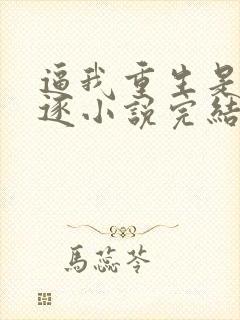 逼我重生是
逐小說完結
馬蕊苓